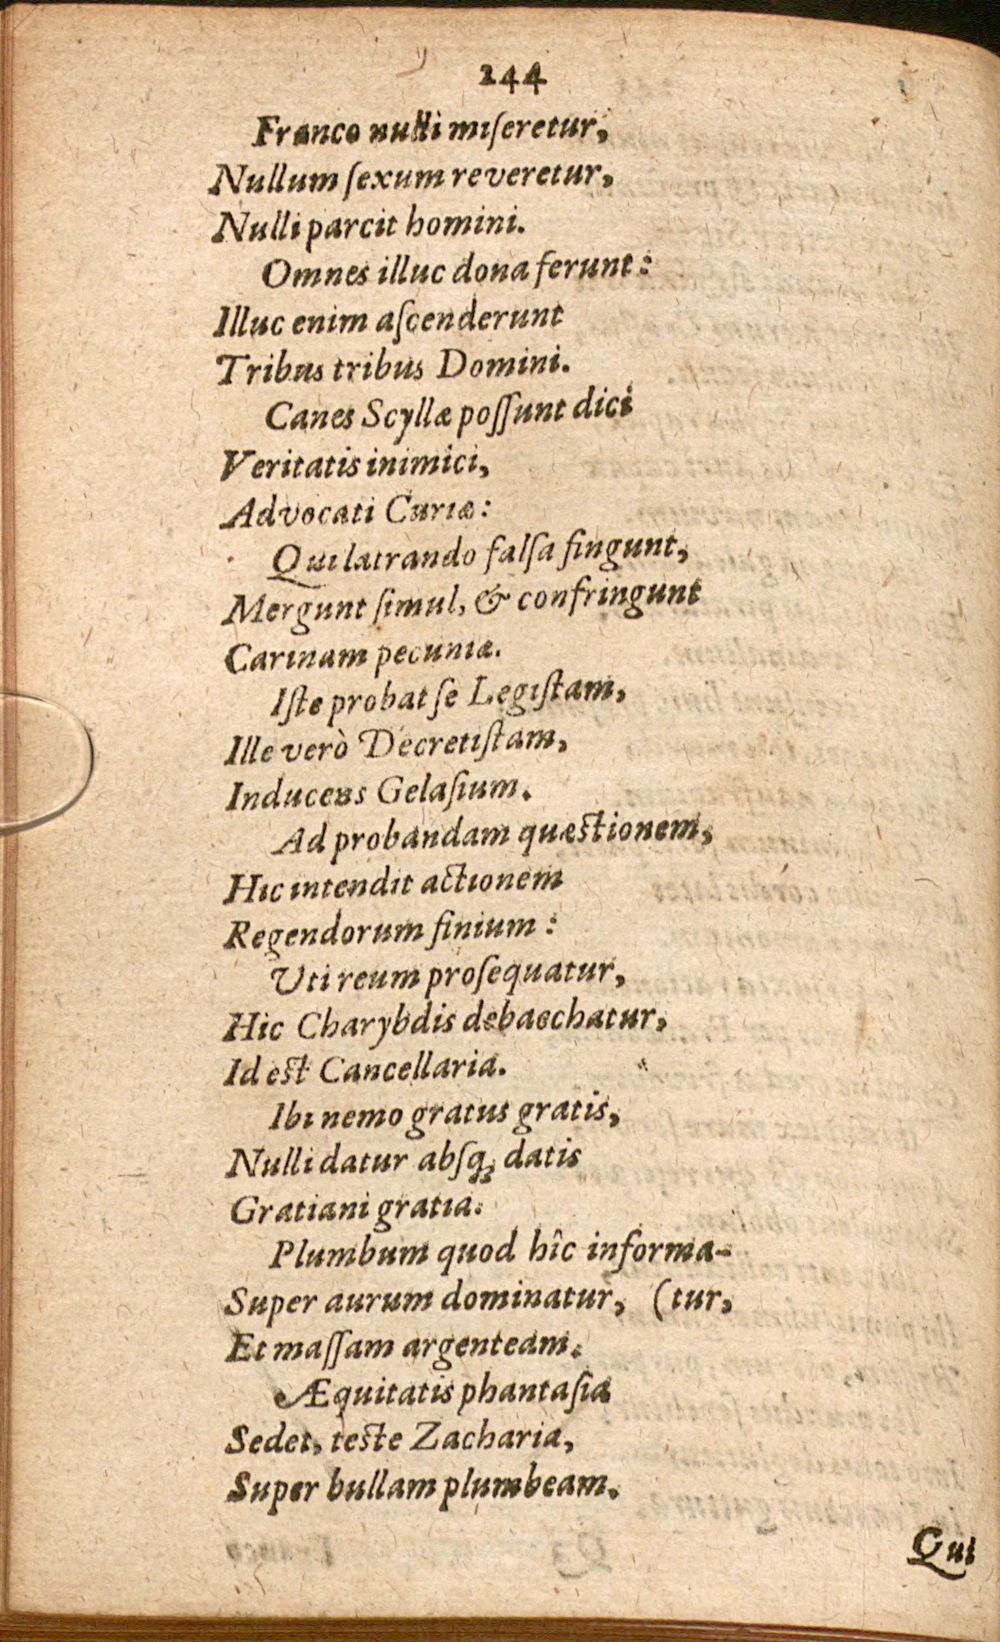 244
Franco nulli miſeretur,
Nullum ſexum reveretur,
Nulli parcit homini.
Omnes illuc dona ferunt:
Illuc enim aſcenderunt
Tribus tribus Domini.
Canes Scyllæ poſſunt dici
Veritatis inimici,
Advocati Curiæ:
Qui latrando falſa fingunt,
Mergunt ſimul, & confringunt
Carinam pecuniæ.
Iſte probat ſe Legiſtam,
Ille verò Decretiſtam,
Inducens Gelaſium.
Ad probandam quæſtionem,
Hic intendit actionem
Regendorum finium:
Uti reum proſequatur,
Hic Charybdis debacchatur,
Id eſt Cancellaria.
Ibi nemo gratus gratis,
Nulli datur abſq; datis
Gratiani gratia.
Plumbum quod hîc informa-
Super aurum dominatur, (tur,
Et maſſam argenteam.
Æquitatis phantaſia
Sedet, teſte Zacharia,
Super bullam plumbeam.
Qui